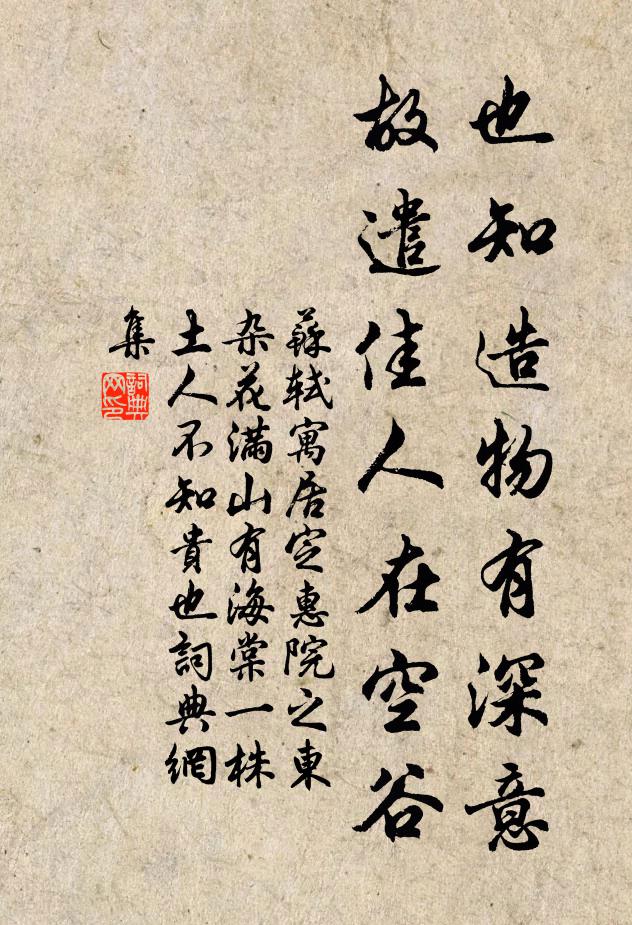 也知造物有深意
故遣佳人在空谷
蘇軾寓居定惠院之東
杂花滿山有海棠一株
土人不知貴也詞典網
集
詞典
网印